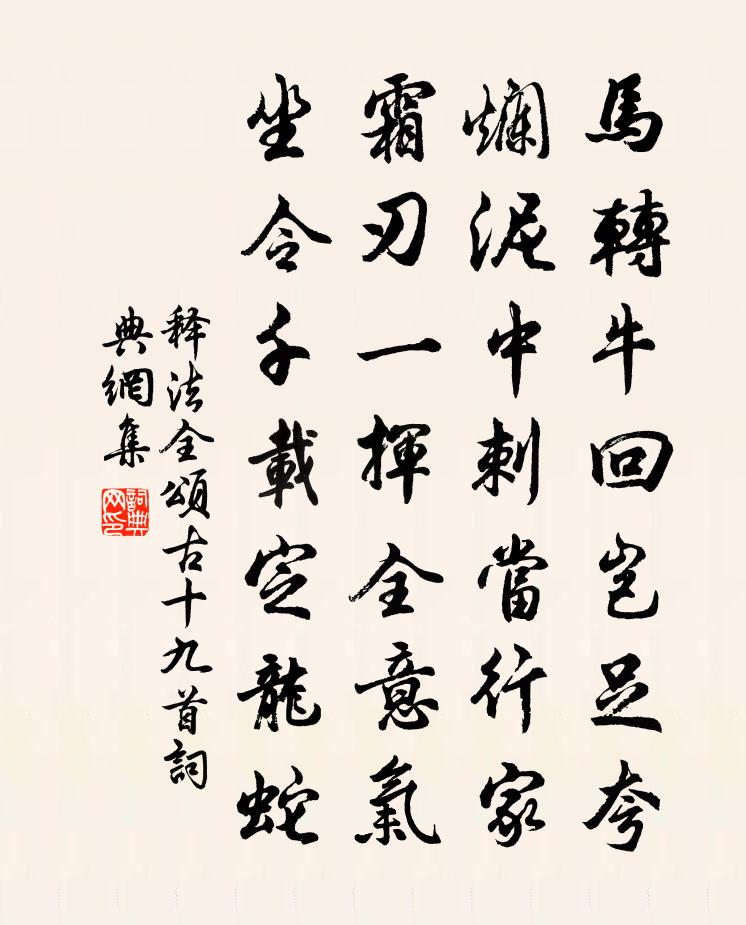 馬轉牛回豈足夸
爛泥中刺當行家
霜刃一揮全意氣
坐令千載定龍蛇
释法全頌古十九首詞
典網集
詞典
网印